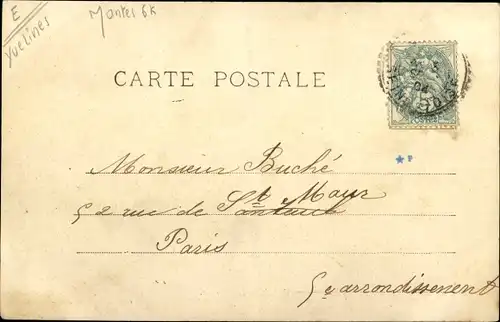 E
Yvelines
Mantes 6K
CARTE POSTALE
Monsieur Buché
St Maur
52 rue de Santeuil
Paris
5e arrondissement